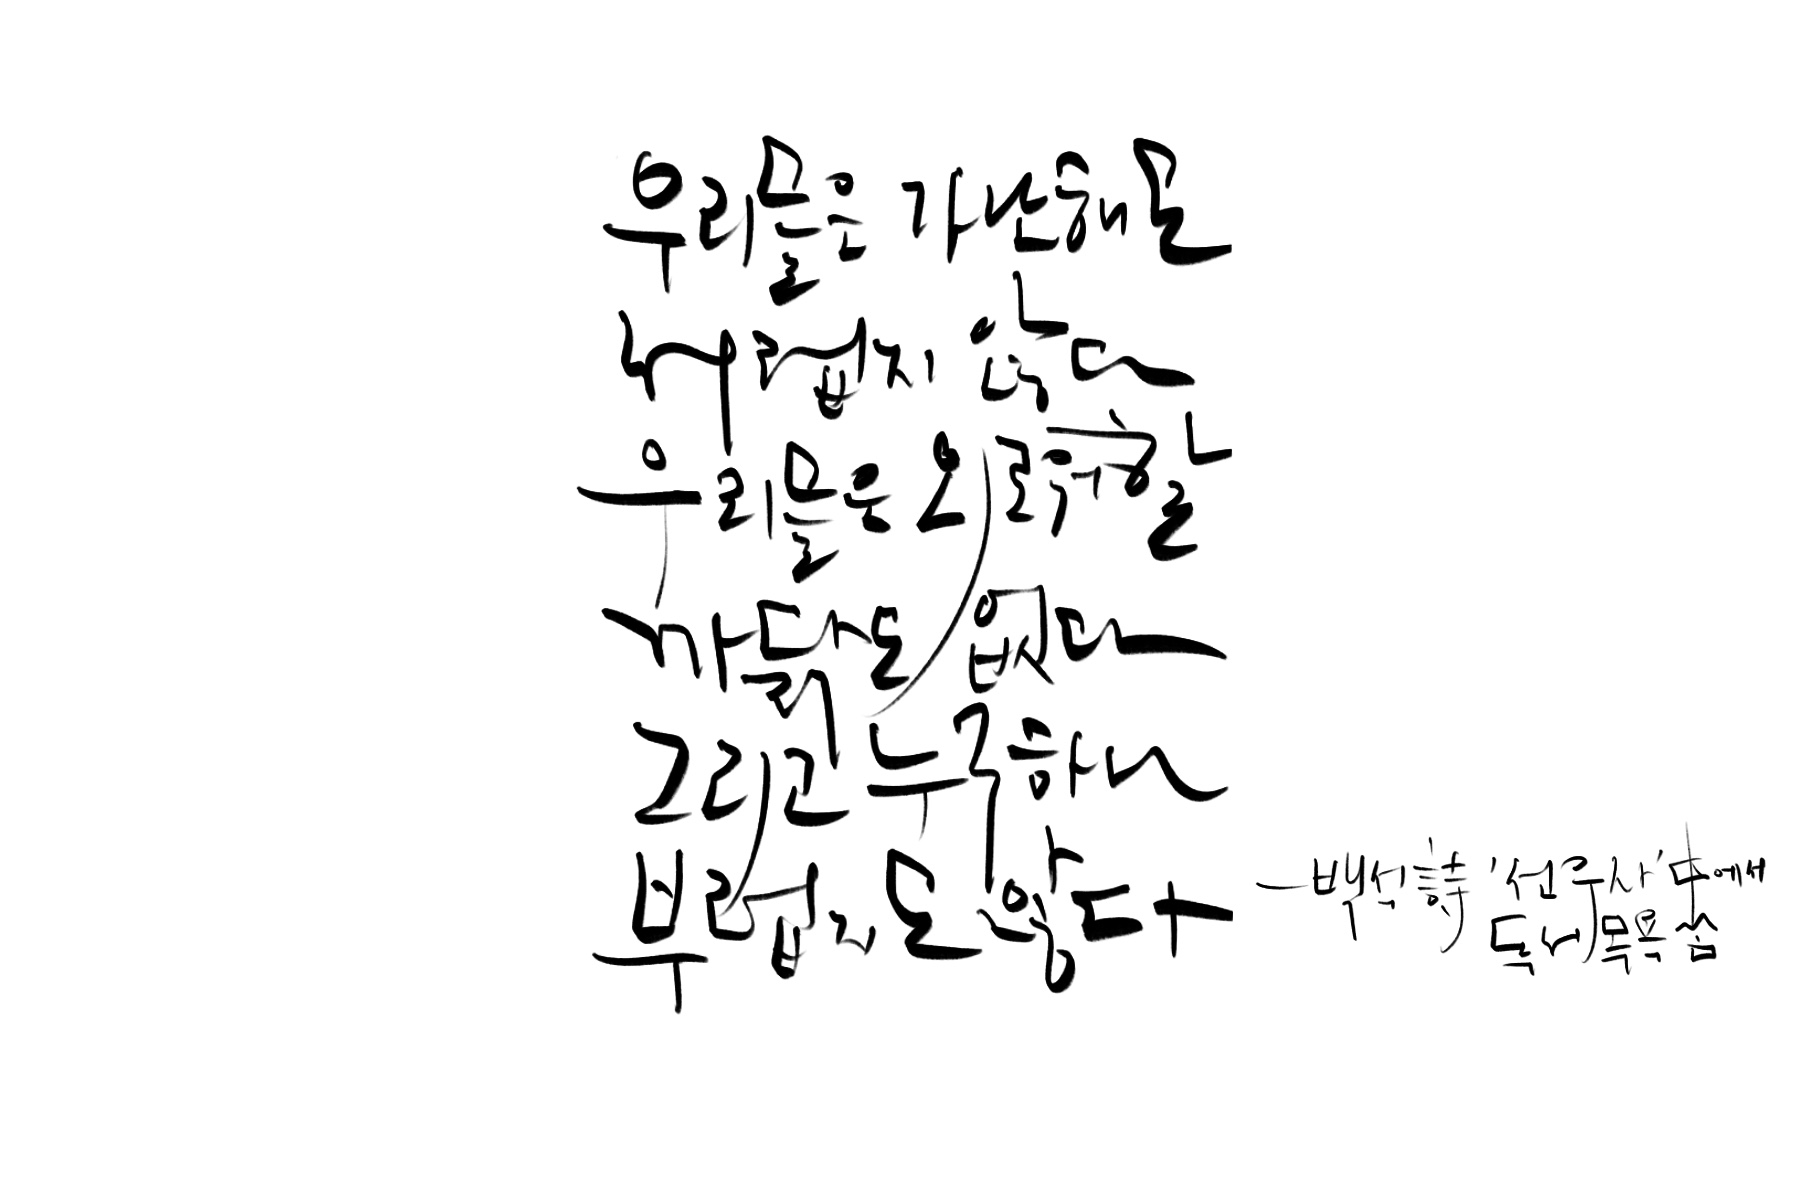 우리들은 가난해도
서럽지 않다
우리들은 외로워할
까닭도 없다
그리고 누구하나
부럽지도 않다
-백석 詩 '선우사' 中에서
목욕 씀